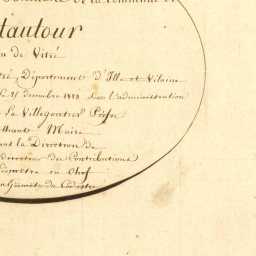 de la Commune de
tautour
on de Vitré
tré, Département d'Ille et Vilaine
Le 21 décembre 1818 sous l'administration
de la Villegontier Préfet
Maire
ant la Direction de
directeur des Contributions
Géomètre en Chef
Géomètre du Cadastre